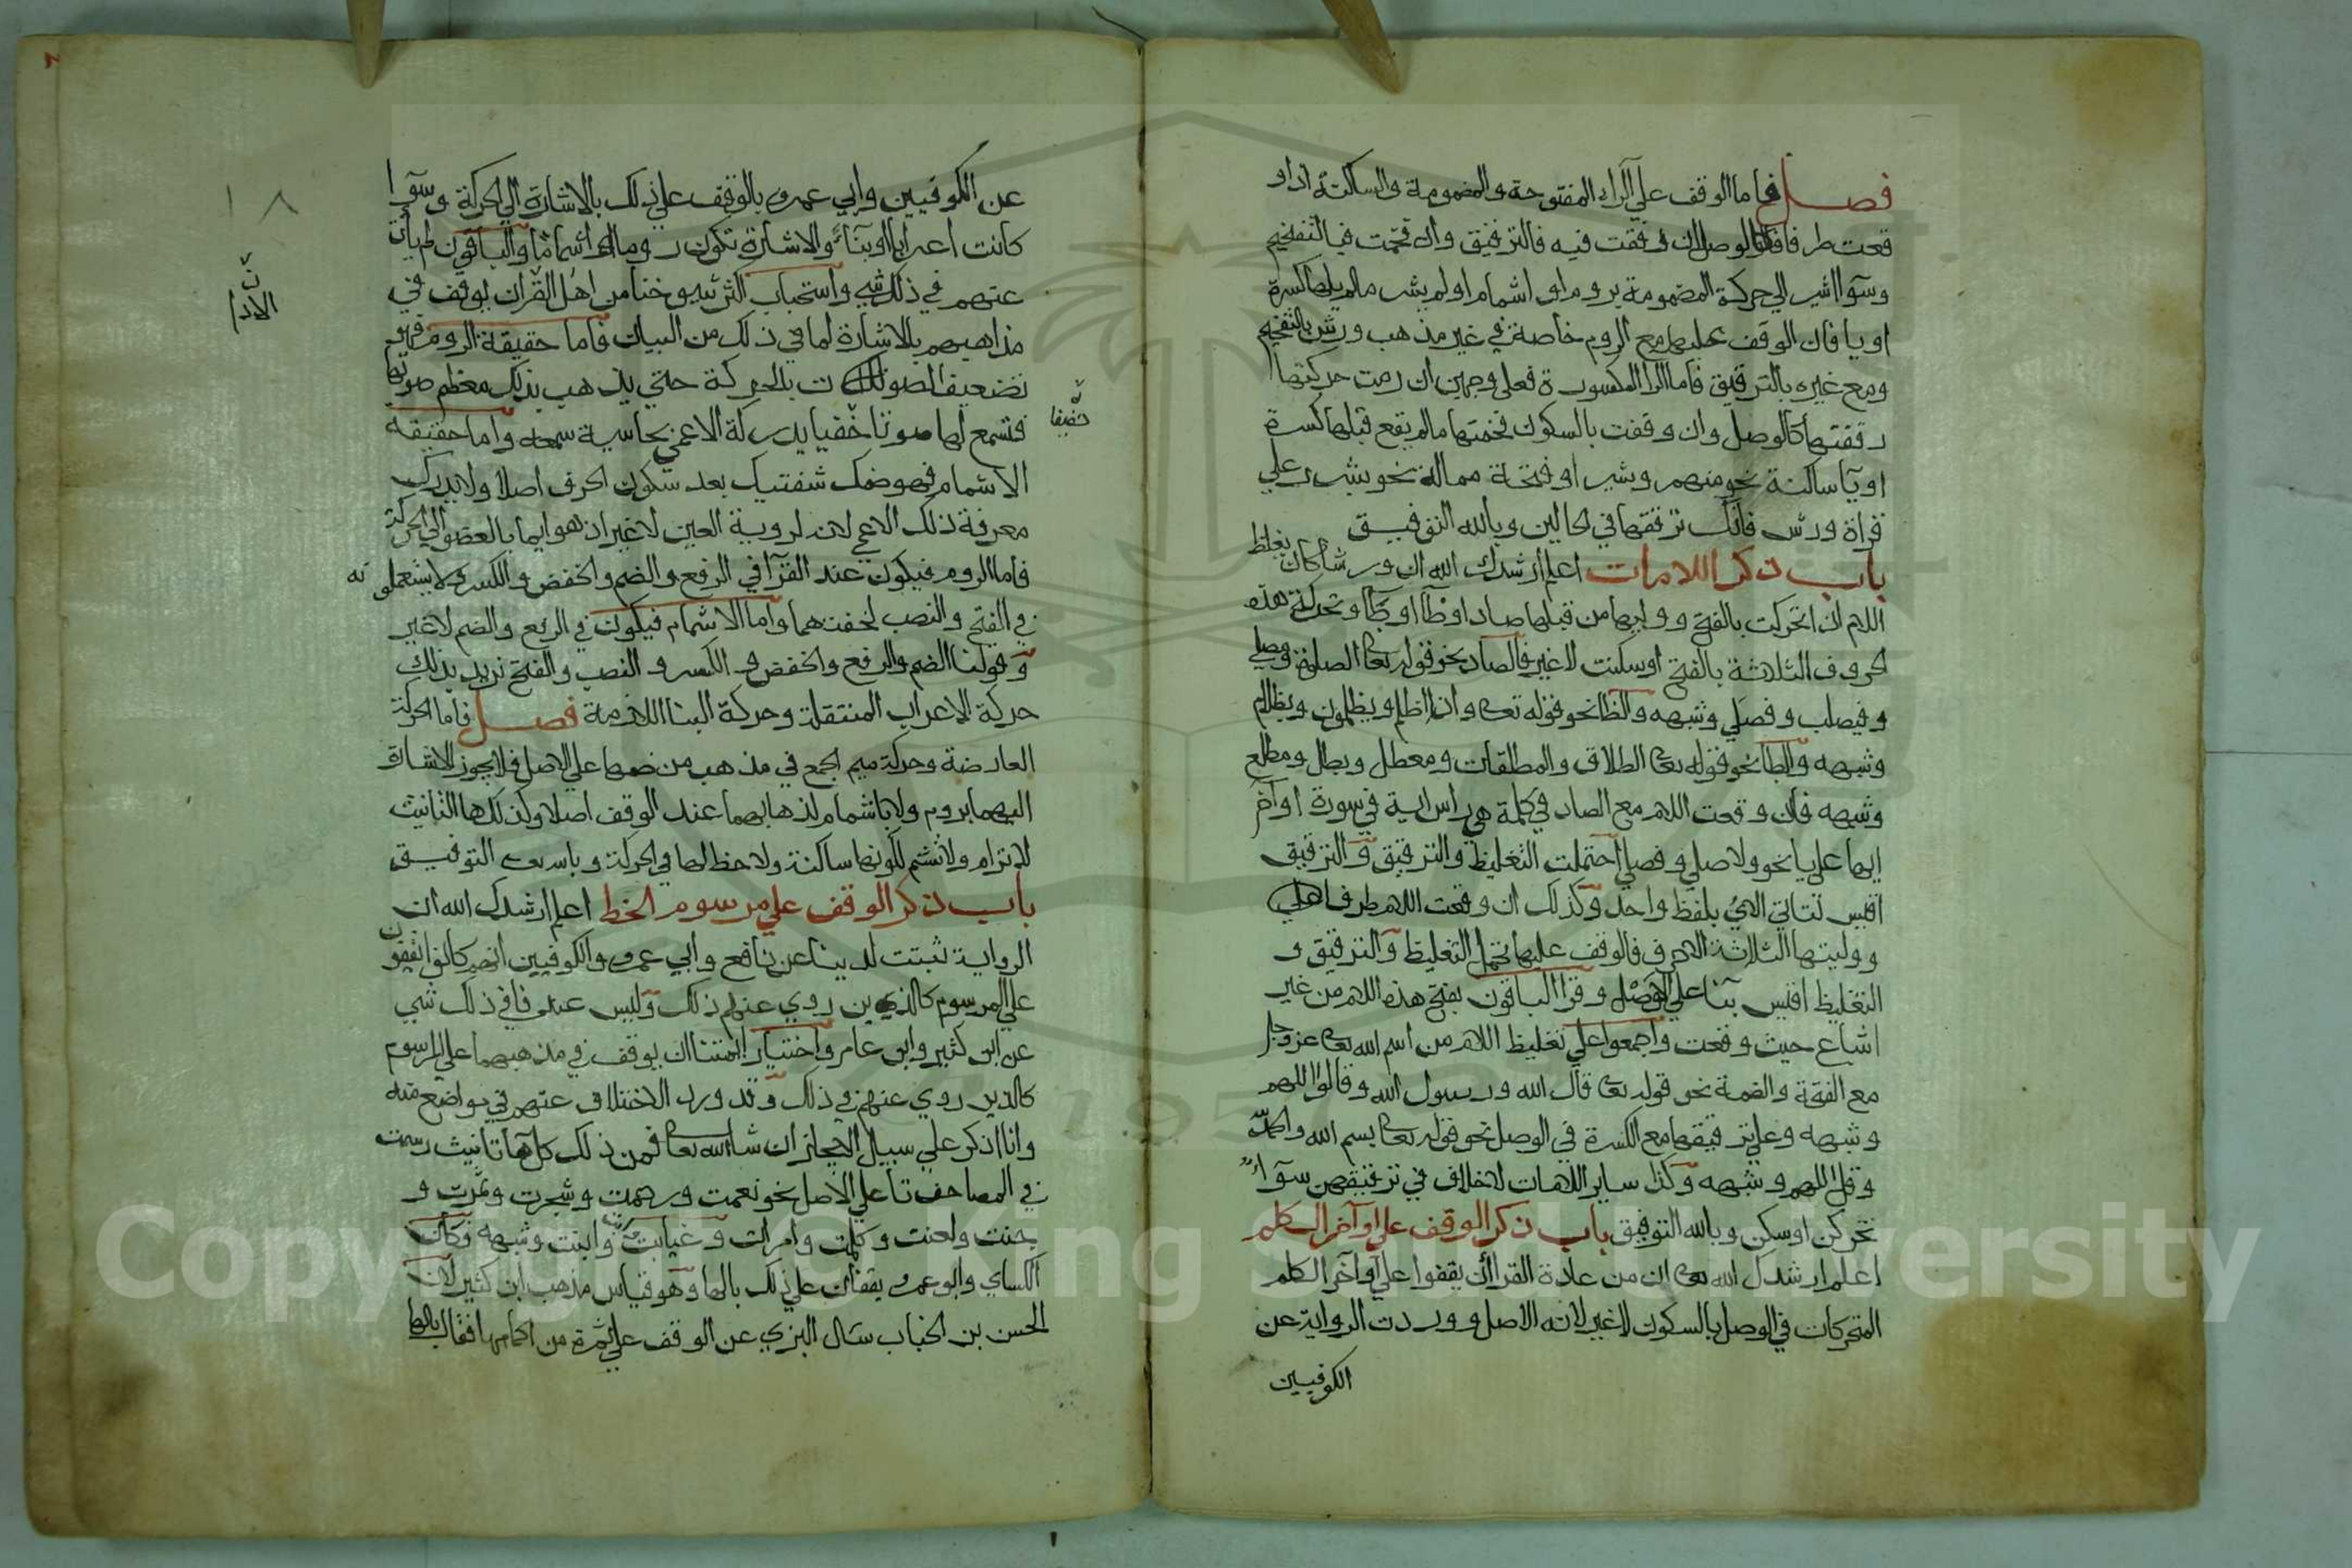 فصل فاما الوقف علي الراء المفتوحة والمضمومة والساكنة اذا و
قعت طرفا فكالوصل ان رققت فيه فالترقيق وان فخمت فبالتفخيم
وسوآ اشير الي حركة المضمومة بروم او اشمام او لم يشر ما لم يلها كسرة
او يا فان الوقف عليها مع الروم خاصة في غير مذهب ورش بالتفخيم
ومع غيره بالترقيق فاما الرا المكسورة فعلي وجهين ان رمت حركتها
رققتها كالوصل وان وقفت بالسكون فخمتها ما لم يقع قبلها كسرة
او يآ ساكنة نحو منهمر وبشير او فتحة ممالة نحو بشرر علي
قراة ورش فانك ترققها في الحالين وبالله التوفيق
باب ذكر اللامات اعلم ارشدك الله ان ورشا كان يغلظ
اللام اذا تحركت بالفتح ووليها من قبلها صاد او ظآ او طآ وتحركت هذه
الحروف الثلاثة بالفتح او سكنت لا غير فالصاد نحو قوله تعا الصلوة ومصلي
وفيصلب وفصلي وشبهه والظا نحو قوله تعا واذا اظلم ويظلمون وبظلام
وشبهه والطا نحو قوله تعا الطلاق والمطلقات ومعطل وبطل ومطلع
وشبهه فان وقعت اللام مع الصاد في كلمة هي راس اية في سورة اوآخر
ايها علي يا نحو ولا صلي وفصلي احتملت التغليظ والترقيق والترقيق
اقيس لتاتي الاي بلفظ واحد وكذلك ان وقعت اللام طرفا
ووليتها الثلاثة الاحرف فالوقف عليها يحتمل التغليظ والترقيق و
التغليظ اقيس بنآ علي الوصل وقرا الباقون بفتح هذه اللام من غير
اشباع حيث وقعت واجمعوا علي تغليظ اللام من اسم الله تعا عز وجل
مع الفتحة والضمة نحو قوله تعا قال الله ورسول الله وقالوا اللهم
وشبهه وعلي ترقيقها مع الكسرة في الوصل نحو قوله تعا بسم الله والحمد
وقل اللهم وشبهه وكذا ساير اللامات لا خلاف في ترقيقهن سوآء
تحركن او سكن وبالله التوفيق باب ذكر الوقف علي اوآخر الكلم
اعلم ارشدك الله تعا ان من عادة القرا ان يقفوا علي اوآخر الكلم
المتحركات في الوصل بالسكون لا غير لانه الاصل ووردت الرواية عن
الكوفيين
عن الكوفيين وابي عمرو بالوقف علي ذلك بالاشارة الي الحركة وسوآ
كانت اعرابا او بنآء والاشارة تكون روما او اشماما والباقون لم يات
عنهم في ذلك شي واستحباب اكثر شيوخنا من اهل القران يوقف في
مذاهبهم بالاشارة لما في ذلك من البيان فاما حقيقة الروم فهو
تضعيفك الصوت بالحركة حتي يذهب بذلك معظم صوتها
فتسمع لها صوتا خفيا يدركه الاعمي بحاسية سمعه واما حقيقة
خفيفا
الاشمام فهو ضمك شفتيك بعد سكون الحرف اصلا ولا يدرك
معرفة ذلك الاعمي لانه لروية العين لا غير اذ هو ايما بالعضو الي الحركة
فاما الروم فيكون عند القرآ في الرفع والضم والخفض والكسر ولا يستعملونه
في الفتح والنصب لخفتهما واما الاشمام فيكون في الرفع والضم لا غير
وقولنا الضم والرفع والخفض والكسر والنصب والفتح نريد بذلك
حركة الاعراب المنتقلة وحركة البنا اللازمة فصل فاما الحركة
العارضة وحركة ميم الجمع في مذهب من ضمها علي الاصل فلا يجوز الاشارة
اليهما بروم ولا باشمام لذهابهما عند الوقف اصلا وكذلك ها التانيث
لا ترام ولا تشم لكونها ساكنة ولا حظ لها في الحركة وبالله تعا التوفيق
باب ذكر الوقف علي مرسوم الخط اعلم ارشدك الله ان
الرواية ثبتت لدينا عن نافع وابي عمرو والكوفيين انهم كانوا يقفون
علي المرسوم كالذين روي عنهم ذلك وليس عندنا في ذلك شي
عن ابن كثير وابن عامر واختيار ايمتنا ان يوقف في مذهبهما علي المرسوم
كالذين روي عنهم في ذلك وقد ورد الاختلاف عنهم في مواضع منه
وانا اذكر علي سبيل الايجاز ان شا الله تعا فمن ذلك كل هآ تانيث رسمت
في المصاحف تآ علي الاصل نحو نعمت ورحمت وشجرت وثمرت و
جنت ولعنت وكلمت وامرات وغيابت وابنت وشبهه وكان
الكساي وابو عمرو يقفان علي ذلك بالها وهو قياس مذهب ابن كثير لان
الحسن بن الحباب سال البزي عن الوقف علي ثمرة من اكمامها فقال بالها